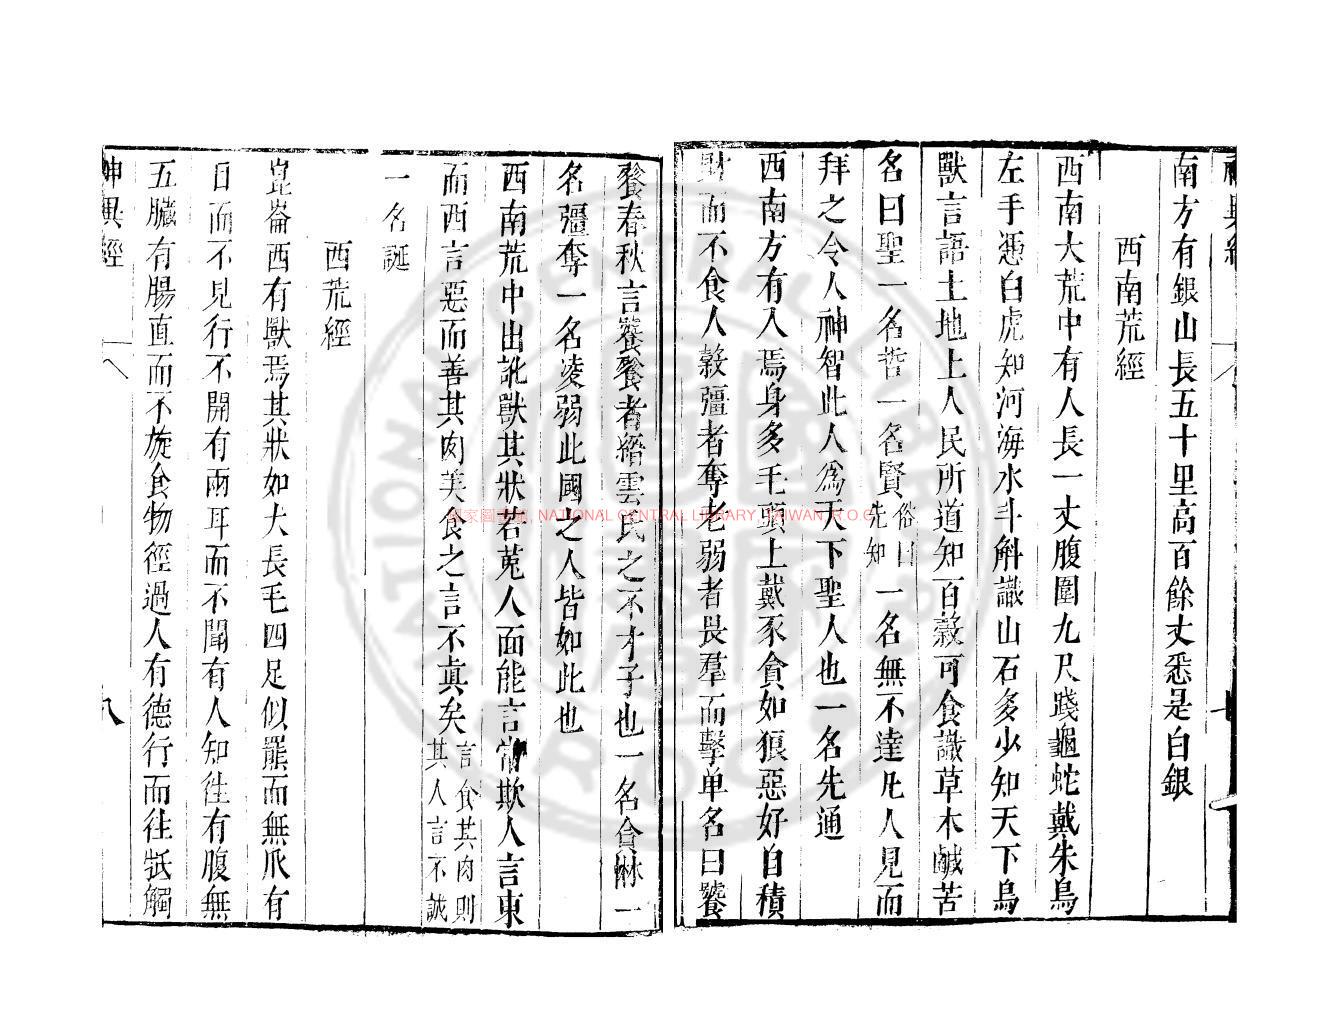 神異經
南方有銀山長五十里高百餘丈悉是白銀
西南荒經
西南大荒中有人長一丈腹圍九尺踐龜蛇戴朱鳥
左手憑白虎知河海水斗斛識山石多少知天下鳥
獸言語土地上人民所道知百穀可食識草木鹹苦
名曰聖一名哲一名賢俗曰先知一名無不達凡人見而
拜之令人神智此人爲天下聖人也一名先通
西南方有人焉身多毛頭上戴豕貪如狼惡好自積
財而不食人穀彊者奪老弱者畏羣而擊单名曰饕
餮春秋言饕餮者縉雲氏之不才子也一名貪惏一
名彊奪一名凌弱此國之人皆如此也
西南荒中出訛獸其狀若菟人面能言常欺人言東
而西言惡而善其肉美食之言不真矣言食其肉則其人言不誠
一名誕
西荒經
崑崙西有獸焉其狀如犬長毛四足似羆而無爪有
目而不見行不開有兩耳而不聞有人知徃有腹無
五臟有腸直而不旋食物徑過人有德行而往牴觸
神異經
八
國家圖書館 NATIONAL CENTRAL LIBRARY, TAIWAN (R.O.C)